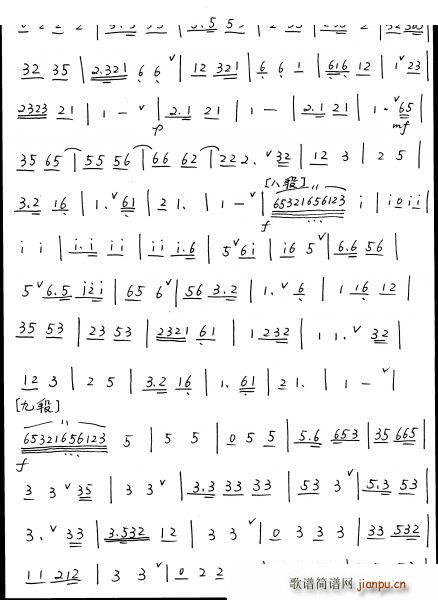 32 35 | 2.321 6 6 ˅ | 12 321 | 6 6 1 | 616 12 | 1 ˅ 23 |
2323 21 | 1 - ˅ | 2.1 21 | 1 - | 2.1 21 | 1 - ˅ 65 |
p mf
35 65 | 55 56 | 66 62 | 222. ˅ 32 | 12 3 | 2 5 |
[八段]
3.2 16 | 1. ˅ 61 | 2 1. | 1 - ˅ | 65321656123 i | i 0 i i |
f
i i | i.i i i | i i i.6 | 5 ˅ 6i | i6 5 ˅ | 6.6 56 |
5 ˅ 6.5 i2i | 65 6 ˅ | 56 3.2 | 1. ˅ 6 | 1 16 12 |
35 53 | 23 53 | 2321 61 | 1 232 | 1 1. ˅ 32 |
12 3 | 2 5 | 3.2 16 | 1. 61 | 2 1. | 1 - ˅ |
[九段]
65321656123 5 | 5 5 | 0 5 5 | 5.6 653 | 35 665 |
f
3 3 ˅ 35 | 3 3 ˅ | 3.3 33 33 | 53 3 ˅ | 5.3 53 |
3. ˅ 33 | 3.532 12 | 3 3 ˅ | 0 3 3 3 | 33 532 |
11 212 | 3 3 ˅ | 0 2 2
歌谱简谱网
jianpu.cn